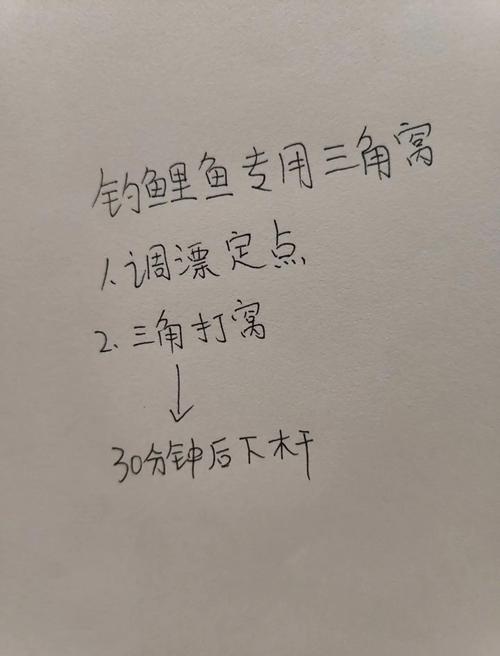 钓鲤鱼专用三角窝
1.调漂定点
2.三角打窝
↓
30分钟后下杆